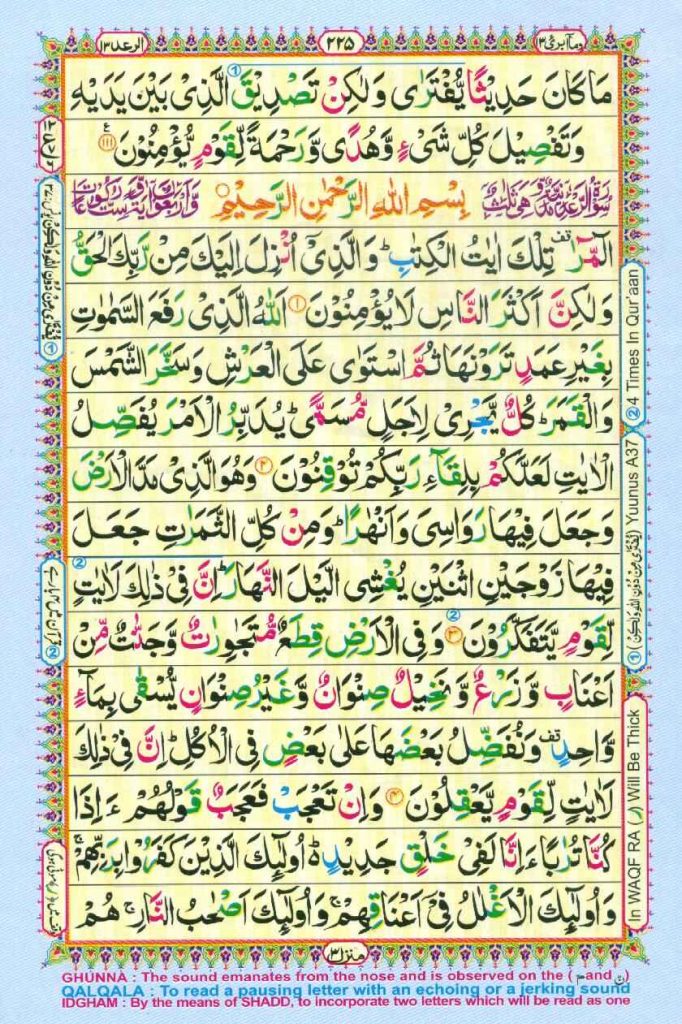 الرعد ١٣
٢٢٥
ومآ ابرئ ١٣
مَا كَانَ حَدِيْثًا يُّفْتَرٰى وَلٰكِنْ تَصْدِيْقَ الَّذِىْ بَيْنَ يَدَيْهِ
وَتَفْصِيْلَ كُلِّ شَىْءٍ وَّهُدًى وَّرَحْمَةً لِّقَوْمٍ يُّؤْمِنُوْنَ ﴿١١١﴾
بِسْمِ اللهِ الرَّحْمٰنِ الرَّحِيْمِ
الٓمّٓرٰ تِلْكَ اٰيٰتُ الْكِتٰبِ ؕ وَالَّذِىْٓ اُنْزِلَ اِلَيْكَ مِنْ رَّبِّكَ الْحَقُّ
وَلٰكِنَّ اَكْثَرَ النَّاسِ لَا يُؤْمِنُوْنَ ﴿١﴾ اَللهُ الَّذِىْ رَفَعَ السَّمٰوٰتِ
بِغَيْرِ عَمَدٍ تَرَوْنَهَا ثُمَّ اسْتَوٰى عَلَى الْعَرْشِ وَسَخَّرَ الشَّمْسَ
وَالْقَمَرَ ؕ كُلٌّ يَّجْرِىْ لِاَجَلٍ مُّسَمًّى ؕ يُدَبِّرُ الْاَمْرَ يُفَصِّلُ
الْاٰيٰتِ لَعَلَّكُمْ بِلِقَآءِ رَبِّكُمْ تُوْقِنُوْنَ ﴿٢﴾ وَهُوَ الَّذِىْ مَدَّ الْاَرْضَ
وَجَعَلَ فِيْهَا رَوَاسِىَ وَاَنْهٰرًا ؕ وَمِنْ كُلِّ الثَّمَرٰتِ جَعَلَ
فِيْهَا زَوْجَيْنِ اثْنَيْنِ يُغْشِى الَّيْلَ النَّهَارَ ؕ اِنَّ فِىْ ذٰلِكَ لَاٰيٰتٍ
لِّقَوْمٍ يَّتَفَكَّرُوْنَ ﴿٣﴾ وَفِى الْاَرْضِ قِطَعٌ مُّتَجٰوِرٰتٌ وَّجَنّٰتٌ مِّنْ
اَعْنَابٍ وَّزَرْعٌ وَّنَخِيْلٌ صِنْوَانٌ وَّغَيْرُ صِنْوَانٍ يُّسْقٰى بِمَآءٍ
وَّاحِدٍ وَنُفَضِّلُ بَعْضَهَا عَلٰى بَعْضٍ فِى الْاُكُلِ ؕ اِنَّ فِىْ ذٰلِكَ
لَاٰيٰتٍ لِّقَوْمٍ يَّعْقِلُوْنَ ﴿٤﴾ وَاِنْ تَعْجَبْ فَعَجَبٌ قَوْلُهُمْ ءَاِذَا
كُنَّا تُرٰبًا ءَاِنَّا لَفِىْ خَلْقٍ جَدِيْدٍ ؕ اُولٰٓئِكَ الَّذِيْنَ كَفَرُوْا بِرَبِّهِمْ ۚ
وَاُولٰٓئِكَ الْاَغْلٰلُ فِىْٓ اَعْنَاقِهِمْ ۚ وَاُولٰٓئِكَ اَصْحٰبُ النَّارِ ۚ هُمْ
منزل ٣
① Yuunus A37 ② 4 Times In Qur'aan
In WAQF RA (ر) Will Be Thick
GHUNNA : The sound emanates from the nose and is observed on the (مّ and نّ)
QALQALA : To read a pausing letter with an echoing or a jerking sound
IDGHAM : By the means of SHADD, to incorporate two letters which will be read as one